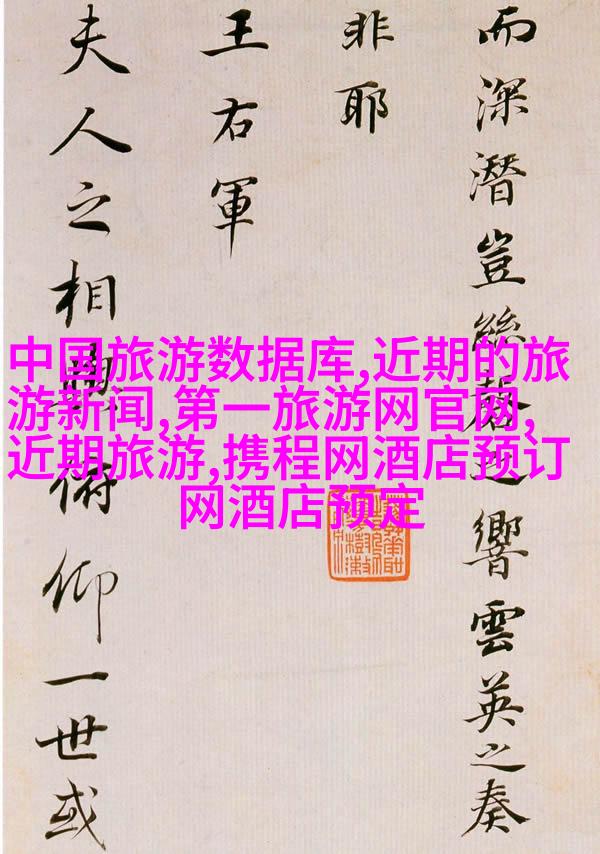 而深潛豈絲之響雲英之奏
非耶
王右軍
夫人之相與俯仰一世或
中国旅游数据库,近期的旅
游新闻,第一旅游网官网,
近期旅游,携程网酒店预订
网酒店预定